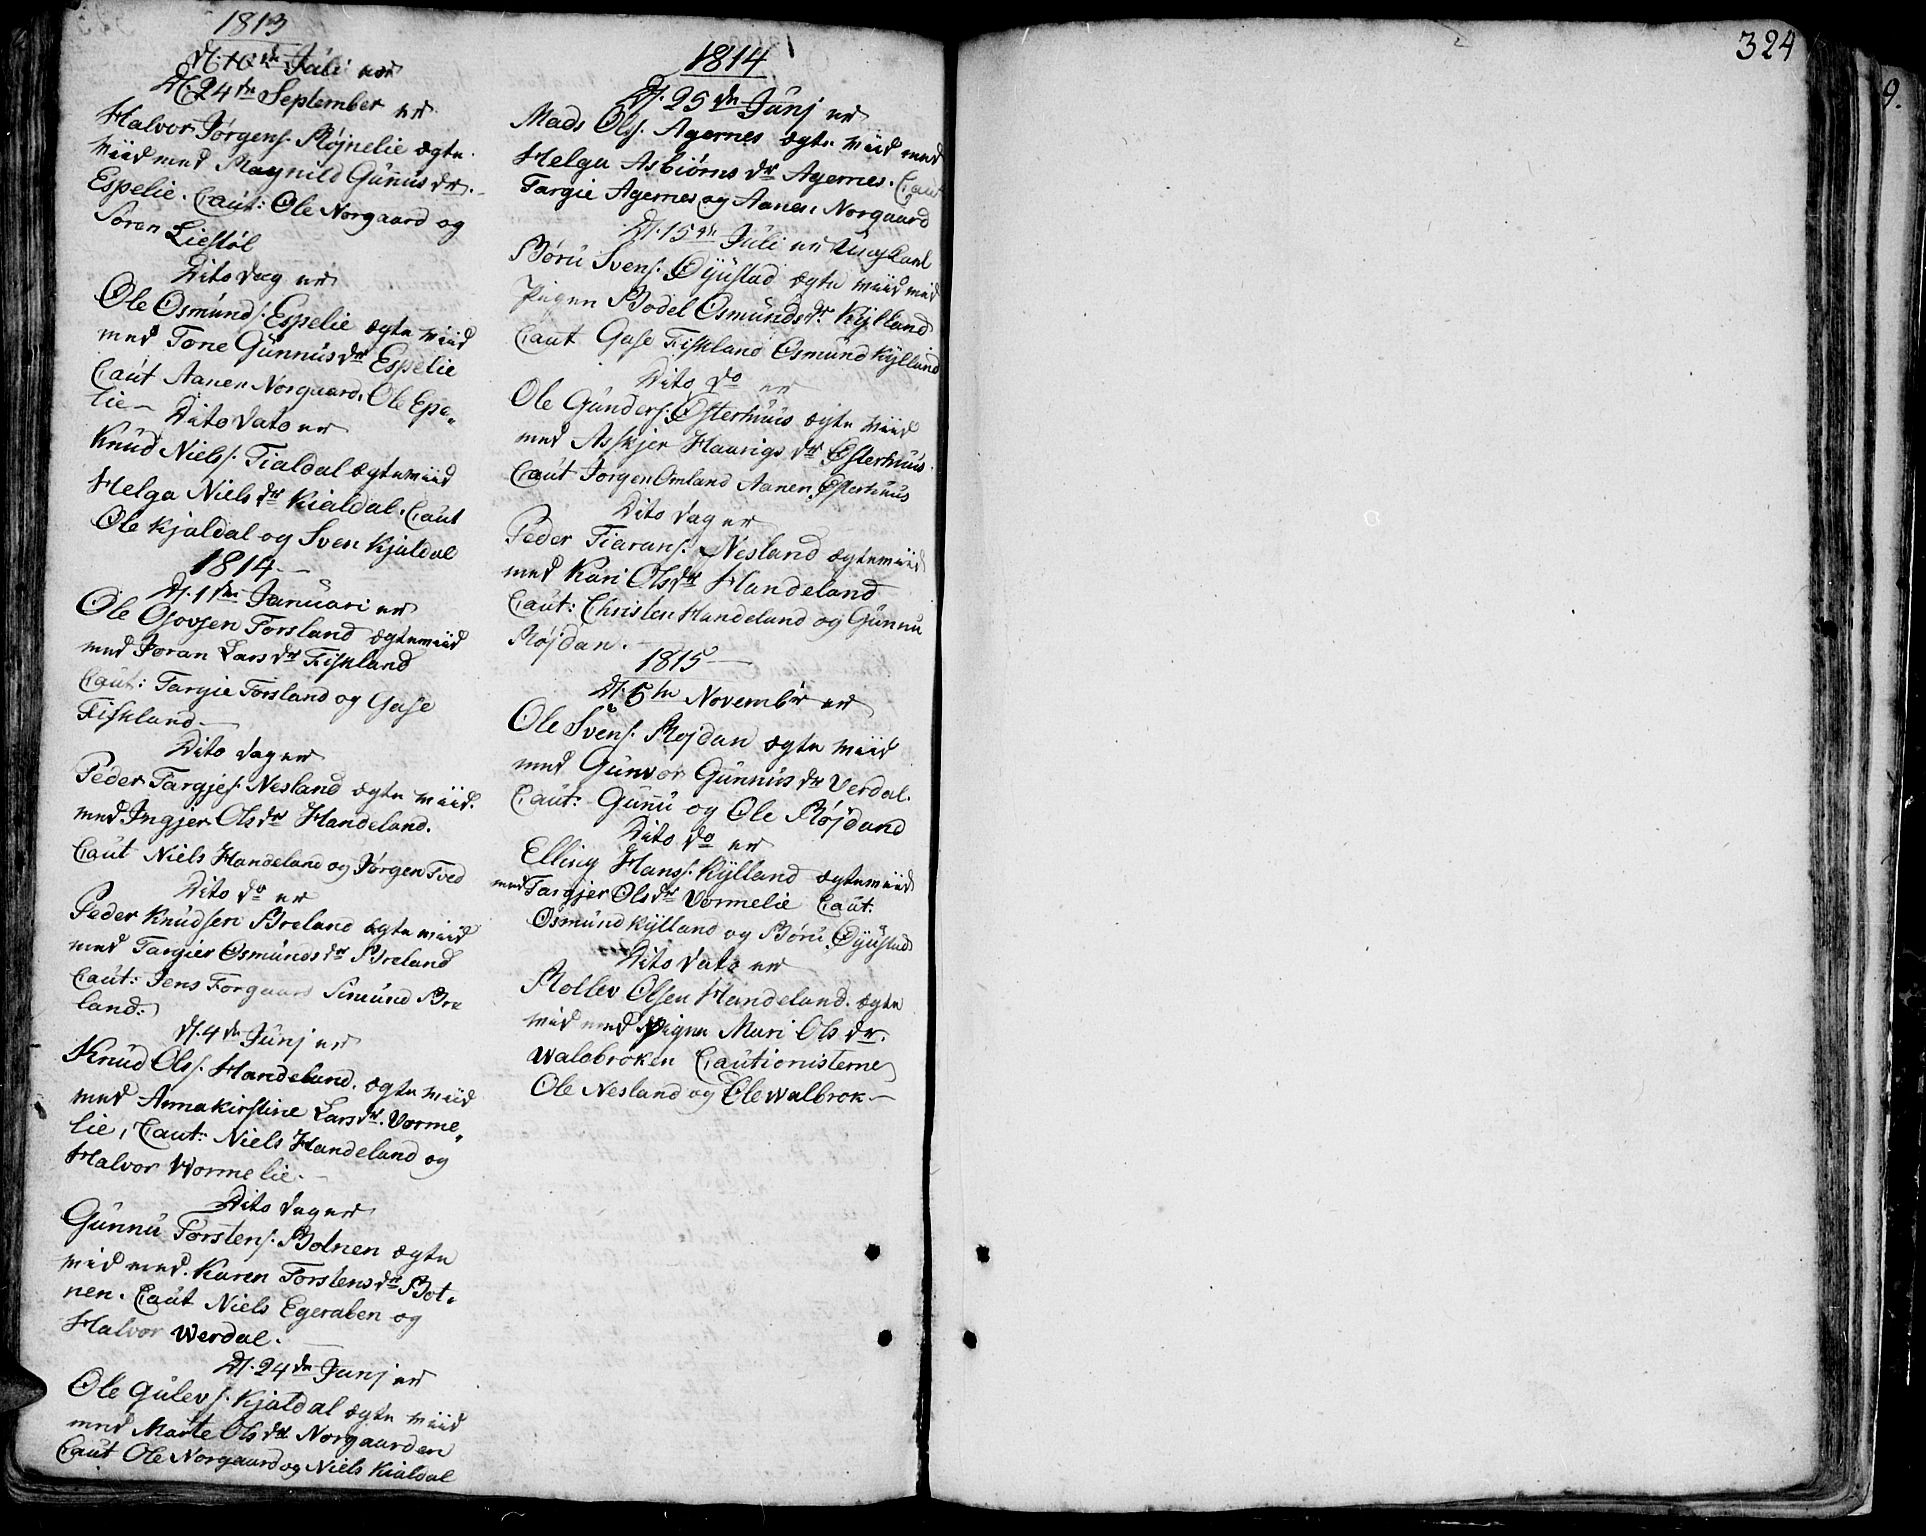 1813
D. 10de Juli er
D. 24de September er
Halvor Jørgens. Røjnelie ægte
viid med Magnild Gunnus dr.
Espelie. Caut: Ole Norgaard og
Søren Liestøl
Dito dag er
Ole Osmunds. Espelie ægte viid
med Tone Gunnus dr Espelie
Caut Aanen Norgaard, Ole Epe„
lie —
Dito dato er
Knud Niels. Tialdal ægte viid
Helga Niels dr Kialdal. Caut
Ole Kjaldal og Sven Kjaldal
1814 —
D. 1de Januari er
Ole Govsen Torsland ægte viid
med Joran Lars dr Fiskland
Caut: Targie Torsland og Gase
Fiskland —
Dito dag er
Peder Targjes. Nesland ægte viid
med Ingjer Ols dr Handeland.
Caut Niels Handeland og Jørgen Tved
Dito do er
Peder Knudsen Breland ægte viid
med Targier Osmunds dr Breland
Caut: Jens Forgaard Simund Bre
land.
D. 4de Junj er
Knud Ols. Handeland. ægte viid
med Annakirstine Lars dr. Vorme„
lie, Caut: Niels Handeland og
Halvor Wormelie. —
Dito dag er
Gunnu Torstens. Botnen ægte
viid med. Karen Torstens dr Bot„
nen. Caut Niels Egeraben og
Halvor Werdal. —
D. 24de Junj er
Ole Gulevs. Kjaldal ægte viid
med Marte Ols dr Norgaarden
Caut Ole Norgaard og Niels Kialdal
1814
D. 25de Junj er
Mads Ols. Agernes ægte viid med
Helga Asbiørns dr Agernes. Caut
Targie Agernes og Aanen Norgaard
D. 15de Juli er Ungkarl
Børu Svens. Øyustad ægte viid med
Pigen Bodel Osmunds dr. Kylland
Caut Gase Fiskland Osmund Kylland
Dito do er
Ole Gunders. Østerhuus ægte viid
med Askjer Haavigs dr Østerhuus.
Caut Jorgen Omland Aanen Østerhuus
Dito dag er
Peder Tiarans. Nesland ægte viid
med Kari Ols dr Handeland
Caut: Christen Handeland og Gunnu
Røjdan. —
1815 —
D. 5te Novembr er
Ole Svens. Røjdan ægte viid
med Gunvor Gunnus dr Verdal.
Caut: Gunu og Ole Røjdand
Dito do er
Elling Hans. Kylland ægte viid
med Targjer Ols dr Vormelie Caut:
Osmund Kylland og Børu Øyustad
Dito dato er
Rollev Olsen Handeland. ægte
viid med Pigen Mari Ols dr.
Walebroken Cautionisterne
Ole Nesland og Ole Walbrok —
324
9.